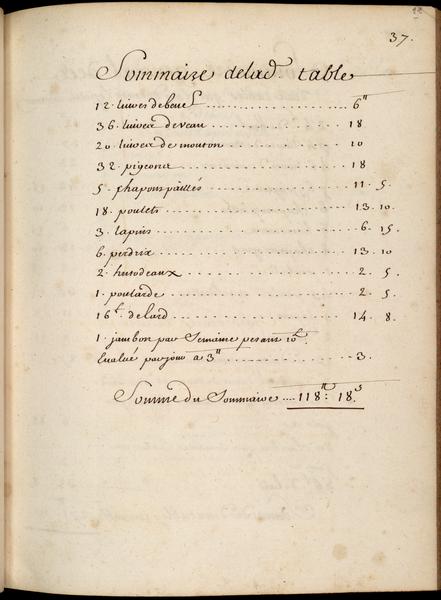 37.
Sommaire delad. table
12. liures de beuf ........ 6"
36. liures de veau ........ 18
20. liures de mouton ........ 10
32. pigeons ........ 18
5. chapons paillés ........ 11. 5.
18. poulets ........ 13. 10.
3. lapins ........ 6. 15.
6. perdrix ........ 13. 10
2. hutodeaux ........ 2. 5.
1. poularde ........ 2. 5.
16l. de lard ........ 14. 8.
1. jambon par Semaine pesant 10l.
Eualué par jour a 3" ........ 3.
Somme du Sommaire .... 118": 18s